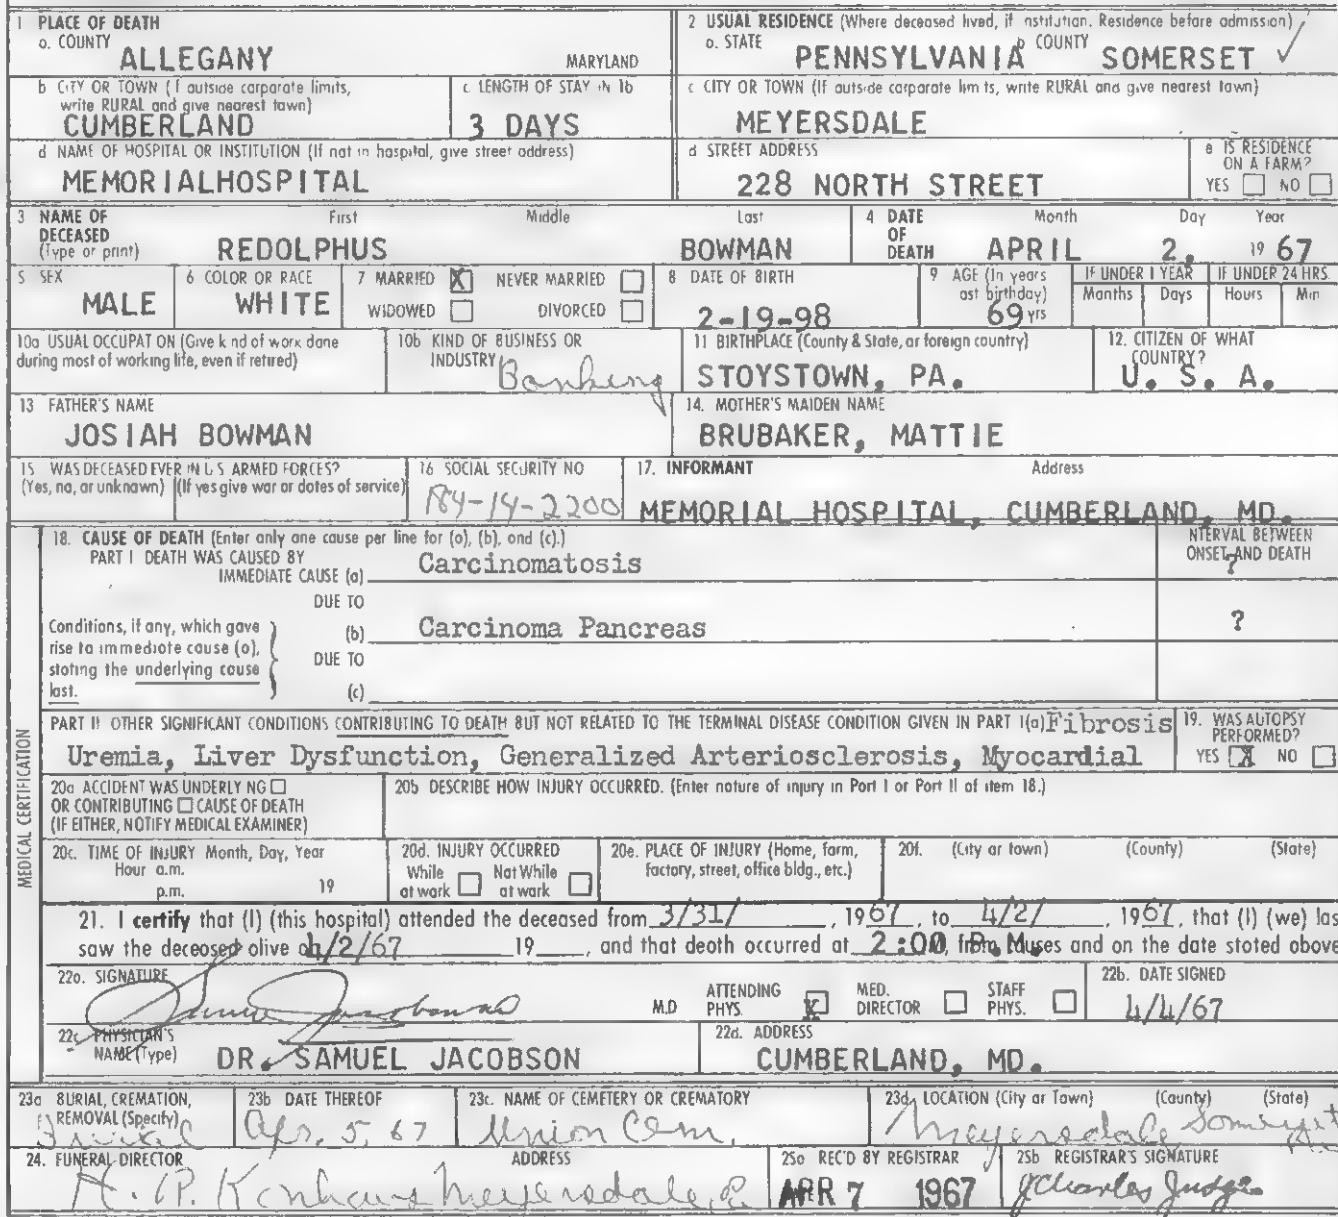 1 PLACE OF DEATH
a. COUNTY
ALLEGANY MARYLAND
2 USUAL RESIDENCE (Where deceased lived, if institution. Residence before admission)
a. STATE PENNSYLVANIA b COUNTY SOMERSET ✓
b CITY OR TOWN (If outside corporate limits, write RURAL and give nearest town)
CUMBERLAND
c. LENGTH OF STAY IN 1b
3 DAYS
c CITY OR TOWN (If outside corporate limits, write RURAL and give nearest town)
MEYERSDALE
d NAME OF HOSPITAL OR INSTITUTION (If not in hospital, give street address)
MEMORIALHOSPITAL
d STREET ADDRESS
228 NORTH STREET
e IS RESIDENCE ON A FARM?
YES NO
3 NAME OF DECEASED (Type or print)
First Middle Last
REDOLPHUS BOWMAN
4 DATE OF DEATH
Month Day Year
APRIL 2, 19 67
5 SEX
MALE
6 COLOR OR RACE
WHITE
7 MARRIED X NEVER MARRIED
WIDOWED DIVORCED
8 DATE OF BIRTH
2-19-98
9 AGE (In years last birthday)
69 yrs
IF UNDER 1 YEAR
Months Days
IF UNDER 24 HRS.
Hours Min
10a USUAL OCCUPATION (Give kind of work done during most of working life, even if retired)
10b KIND OF BUSINESS OR INDUSTRY
Banking
11 BIRTHPLACE (County & State, or foreign country)
STOYSTOWN, PA.
12. CITIZEN OF WHAT COUNTRY?
U. S. A.
13 FATHER'S NAME
JOSIAH BOWMAN
14. MOTHER'S MAIDEN NAME
BRUBAKER, MATTIE
15 WAS DECEASED EVER IN U S ARMED FORCES?
(Yes, no, or unknown) (If yes give war or dates of service)
16 SOCIAL SECURITY NO
184-14-2200
17. INFORMANT Address
MEMORIAL HOSPITAL, CUMBERLAND, MD.
MEDICAL CERTIFICATION
18. CAUSE OF DEATH (Enter only one cause per line for (a), (b), and (c).)
PART I DEATH WAS CAUSED BY
IMMEDIATE CAUSE (a) Carcinomatosis
INTERVAL BETWEEN ONSET AND DEATH
?
DUE TO
Conditions, if any, which gave rise to immediate cause (a), stating the underlying cause last.
(b) Carcinoma Pancreas ?
DUE TO
(c)
PART II OTHER SIGNIFICANT CONDITIONS CONTRIBUTING TO DEATH BUT NOT RELATED TO THE TERMINAL DISEASE CONDITION GIVEN IN PART I(a) Fibrosis
Uremia, Liver Dysfunction, Generalized Arteriosclerosis, Myocardial
19. WAS AUTOPSY PERFORMED?
YES X NO
20a ACCIDENT WAS UNDERLYING
OR CONTRIBUTING CAUSE OF DEATH
(IF EITHER, NOTIFY MEDICAL EXAMINER)
20b DESCRIBE HOW INJURY OCCURRED. (Enter nature of injury in Part I or Part II of item 18.)
20c. TIME OF INJURY Month, Day, Year
Hour a.m.
p.m. 19
20d. INJURY OCCURRED
While at work Not While at work
20e. PLACE OF INJURY (Home, farm, factory, street, office bldg., etc.)
20f. (City or town) (County) (State)
21. I certify that (I) (this hospital) attended the deceased from 3/31/ , 1967, to 4/2/ 1967, that (I) (we) las
saw the deceased alive on 4/2/67 19 , and that death occurred at 2:00 P.M. from causes and on the date stated above
22a. SIGNATURE
Samuel Jacobson M.D
ATTENDING PHYS. X MED. DIRECTOR STAFF PHYS.
22b. DATE SIGNED
4/4/67
22c PHYSICIAN'S NAME (Type)
DR. SAMUEL JACOBSON
22d. ADDRESS
CUMBERLAND, MD.
23a BURIAL, CREMATION, REMOVAL (Specify)
Burial
23b DATE THEREOF
Apr. 5, 67
23c. NAME OF CEMETERY OR CREMATORY
Union Cem.
23d. LOCATION (City or Town) (County) (State)
Meyersdale Somerset
24. FUNERAL DIRECTOR ADDRESS
H. P. Konhaus Meyersdale, Pa
25a REC'D BY REGISTRAR
APR 7 1967
25b REGISTRAR'S SIGNATURE
J Charles Judge